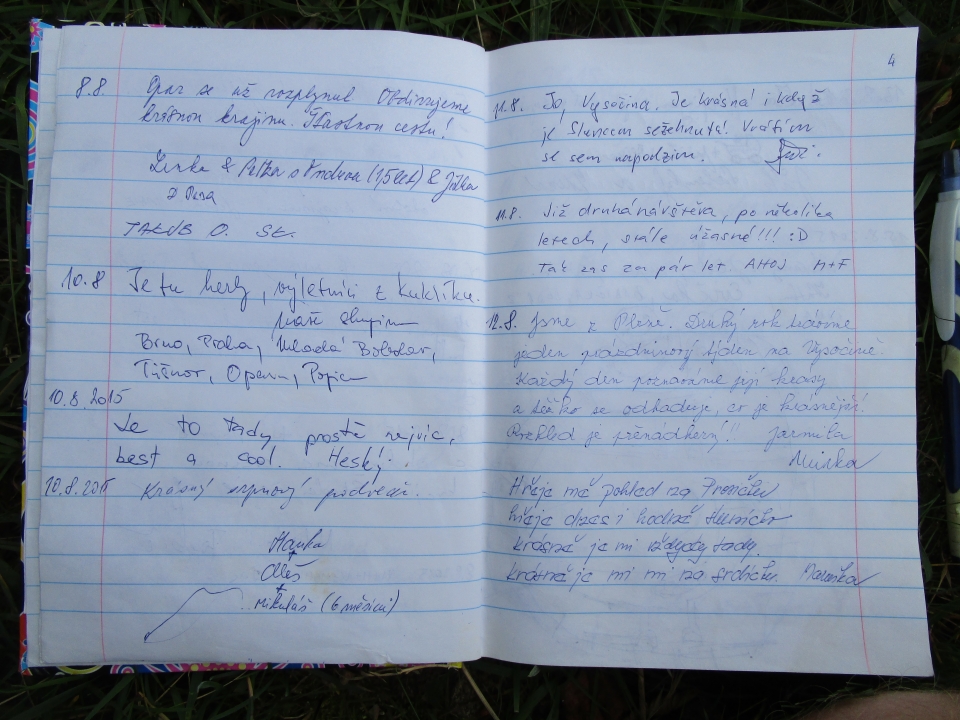 8.8. Opar se už rozplynul. Obdivujeme
krásnou krajinu. Šťastnou cestu!
Lenka & Petra s Ondrou (1,5 let) & Jitka
z
JAKUB O. St.
10.8 Je tu hezky, výletníci z Kuklíku.
naše skupina
Brno, Praha, Mladá Boleslav,
Tišnov, Opava,
10.8.2015
Je to tady prostě nejvíc,
best a cool. Hesky
10.8.2015 Krásný srpnový podvečer.
Hanka
+
Aleš
+
Mikuláš (6 měsíců)
4
11.8. Jo, Vysočina. Je krásná i když
je Sluncem sežehnutá! Vrátím
se sem napodzim.
11.8. Již druhá návštěva, po několika
letech, stále úžasné!!! :D
Tak zas za pár let. AHOJ M+F
12.8. Jsme z Plzně. Druhý rok trávíme
jeden prázdninový týden na Vysočině.
Každý den poznáváme její krásy
a těžko se odhaduje, co je krásnější.
Rozhled je přenádherný!! Jarmila
Mirka
Hřeje mě pohled na
hřeje dnes i hodně
krásně je mi vždycky tady.
krásně je mi mi na srdíčku. Maruška